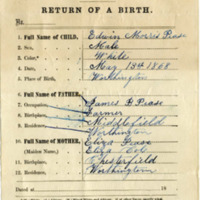 RETURN OF A BIRTH.
No.
1. Full Name of CHILD, Edwin Morris Pease
2. Sex, Male
3. Color,* White
4. Date, May 13th 1868
5. Place of Birth, Worthington
6. Full Name of FATHER, James B Pease
7. Occupation, Farmer
8. Birthplace, Middlefield
9. Residence, Worthington
10. Full Name of MOTHER, Eliza Pease
(Maiden Name.) Eliza Cole
11. Birthplace, Chesterfield
12. Residence, Worthington
Dated at 18